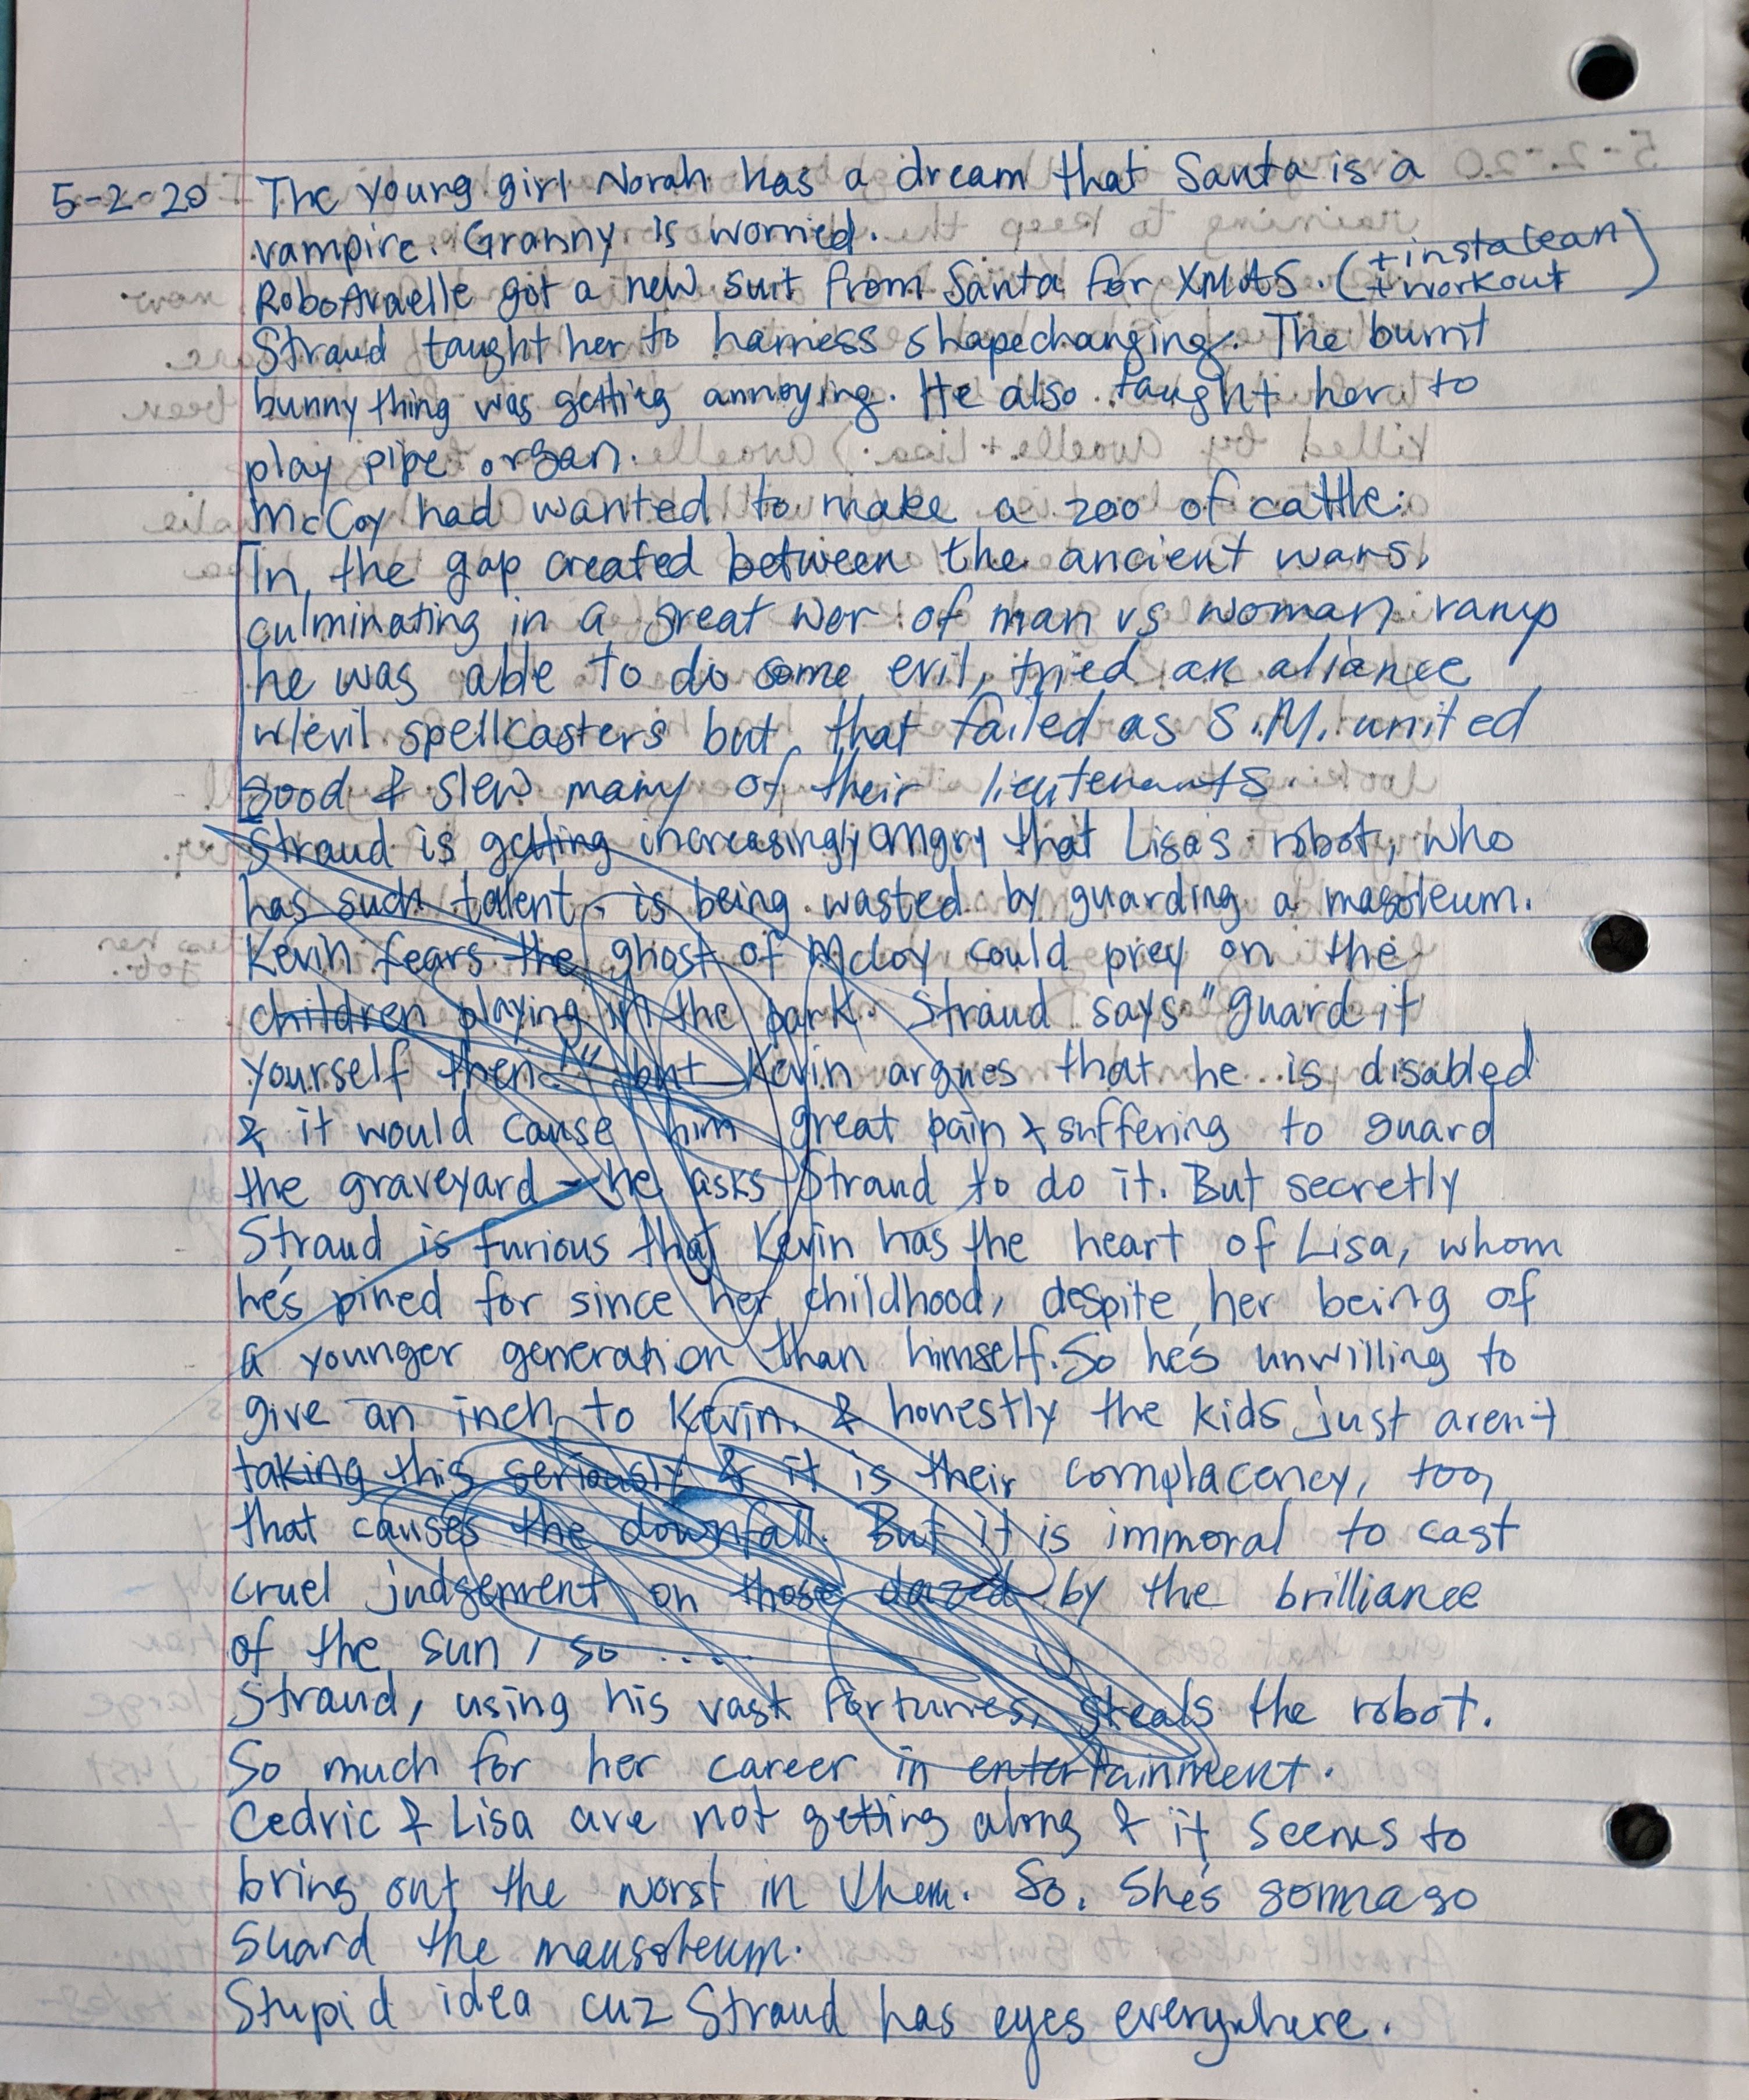 5-2-20 The young girl Norah has a dream that Santa is a
vampire. Granny is worried.
RoboAraelle got a new suit from Santa for XMAS. (+instalean
+workout)
Straud taught her to harness shapechanging. The burnt
bunny thing was getting annoying. He also taught her to
play pipe organ.
McCoy had wanted to make a zoo of cattle.
In the gap created between the ancient wars,
culminating in a great war of man vs woman vamp
he was able to do some evil, tried an aliance
w/evil spellcasters but that failed as S.M. united
good & slew many of their lieutenants.
Straud is getting increasingly angry that Lisa's robot, who
has such talent, is being wasted by guarding a masoleum.
Kevin fears the ghost of McCoy could prey on the
children playing in the park. Straud says "guard it
yourself then!" but Kevin argues that he is disabled
& it would cause him great pain & suffering to guard
the graveyard - he asks Straud to do it. But secretly
Straud is furious that Kevin has the heart of Lisa, whom
he's pined for since her childhood, despite her being of
a younger generation than himself. So he's unwilling to
give an inch to Kevin. & honestly the kids just aren't
taking this seriously & it is their complacency, too,
that causes the downfall. But it is immoral to cast
cruel judgement on those dazed by the brilliance
of the sun, so ....
Straud, using his vast fortunes, steals the robot.
So much for her career in entertainment.
Cedric & Lisa are not getting along & it seems to
bring out the worst in them. So, she's gonna go
guard the mausoleum.
Stupid idea cuz Straud has eyes everywhere.